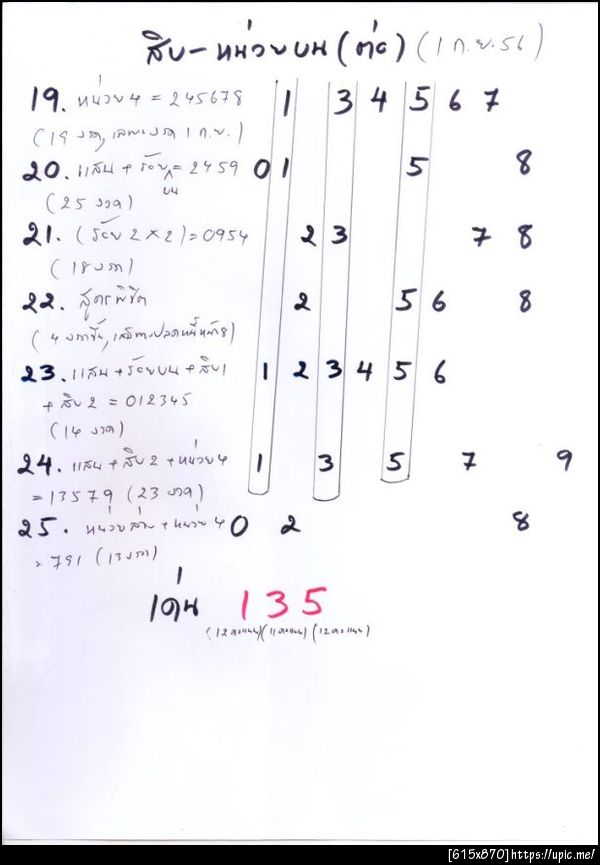 สิบ - หน่วยบน (ต่อ) (1 ก.ย. 56)
19. หน่วย 4 = 245678 1 3 4 5 6 7
(19 งวด, เฉพาะงวด 1 ก.ย.)
20. แสน + ร้อยบน = 2459 0 1 5 8
(25 งวด)
21. (ร้อย 2 x 2) = 0954 2 3 7 8
(18 งวด)
22. สูตรพิชิต 2 5 6 8
(4 งวดขึ้น,
23. แสน + ร้อยบน + สิบ 1 1 2 3 4 5 6
+ สิบ 2 = 012345
(14 งวด)
24. แสน + สิบ 2 + หน่วย 4 1 3 5 7 9
= 13579 (23 งวด)
25. หน่วยล่าง + หน่วย 4 0 2 8
= 791 (13 งวด)
เด่น 1 3 5
(12 คะแนน) (11 คะแนน) (12 คะแนน)
[615x870]https://upic.me/